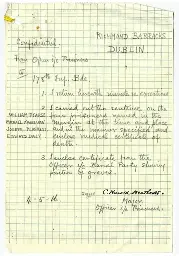 Confidential.
RICHMOND BARRACKS
DUBLIN
From Officer i/c Prisoners
To
178th Inf. Bde
1. I return herewith records on executions
2. I carried out the sentence on the
four prisoners named in the
margin at the time and place
and in the manner specified and
enclose medical certificate of
death.
WILLIAM PEARSE
MICHAEL HANRAHAN
JOSEPH PLUNKETT
EDWARD DALY
3. Enclose certificate from the
Officer i/c Burial Party showing
position of graves.
Signed
Major
4-5-16
Officer i/c Prisoners.